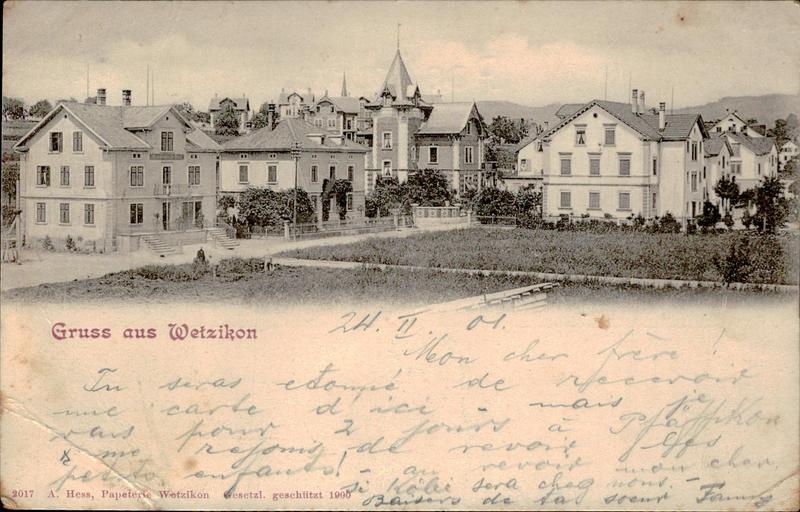 Gruss aus Wetzikon
24. II. 01.
Mon cher frère!
Tu seras etonné de recevoir
une carte d'ici - mais je
vais pour 2 jours à Pfäffikon
& me rejouis de revoir les
petits enfants. - au revoir mon cher.
si sera chez nous. -
Baisers de ta soeur Fanny
2017 A. Hess, Papeterie Wetzikon Gesetzl. geschützt 1900